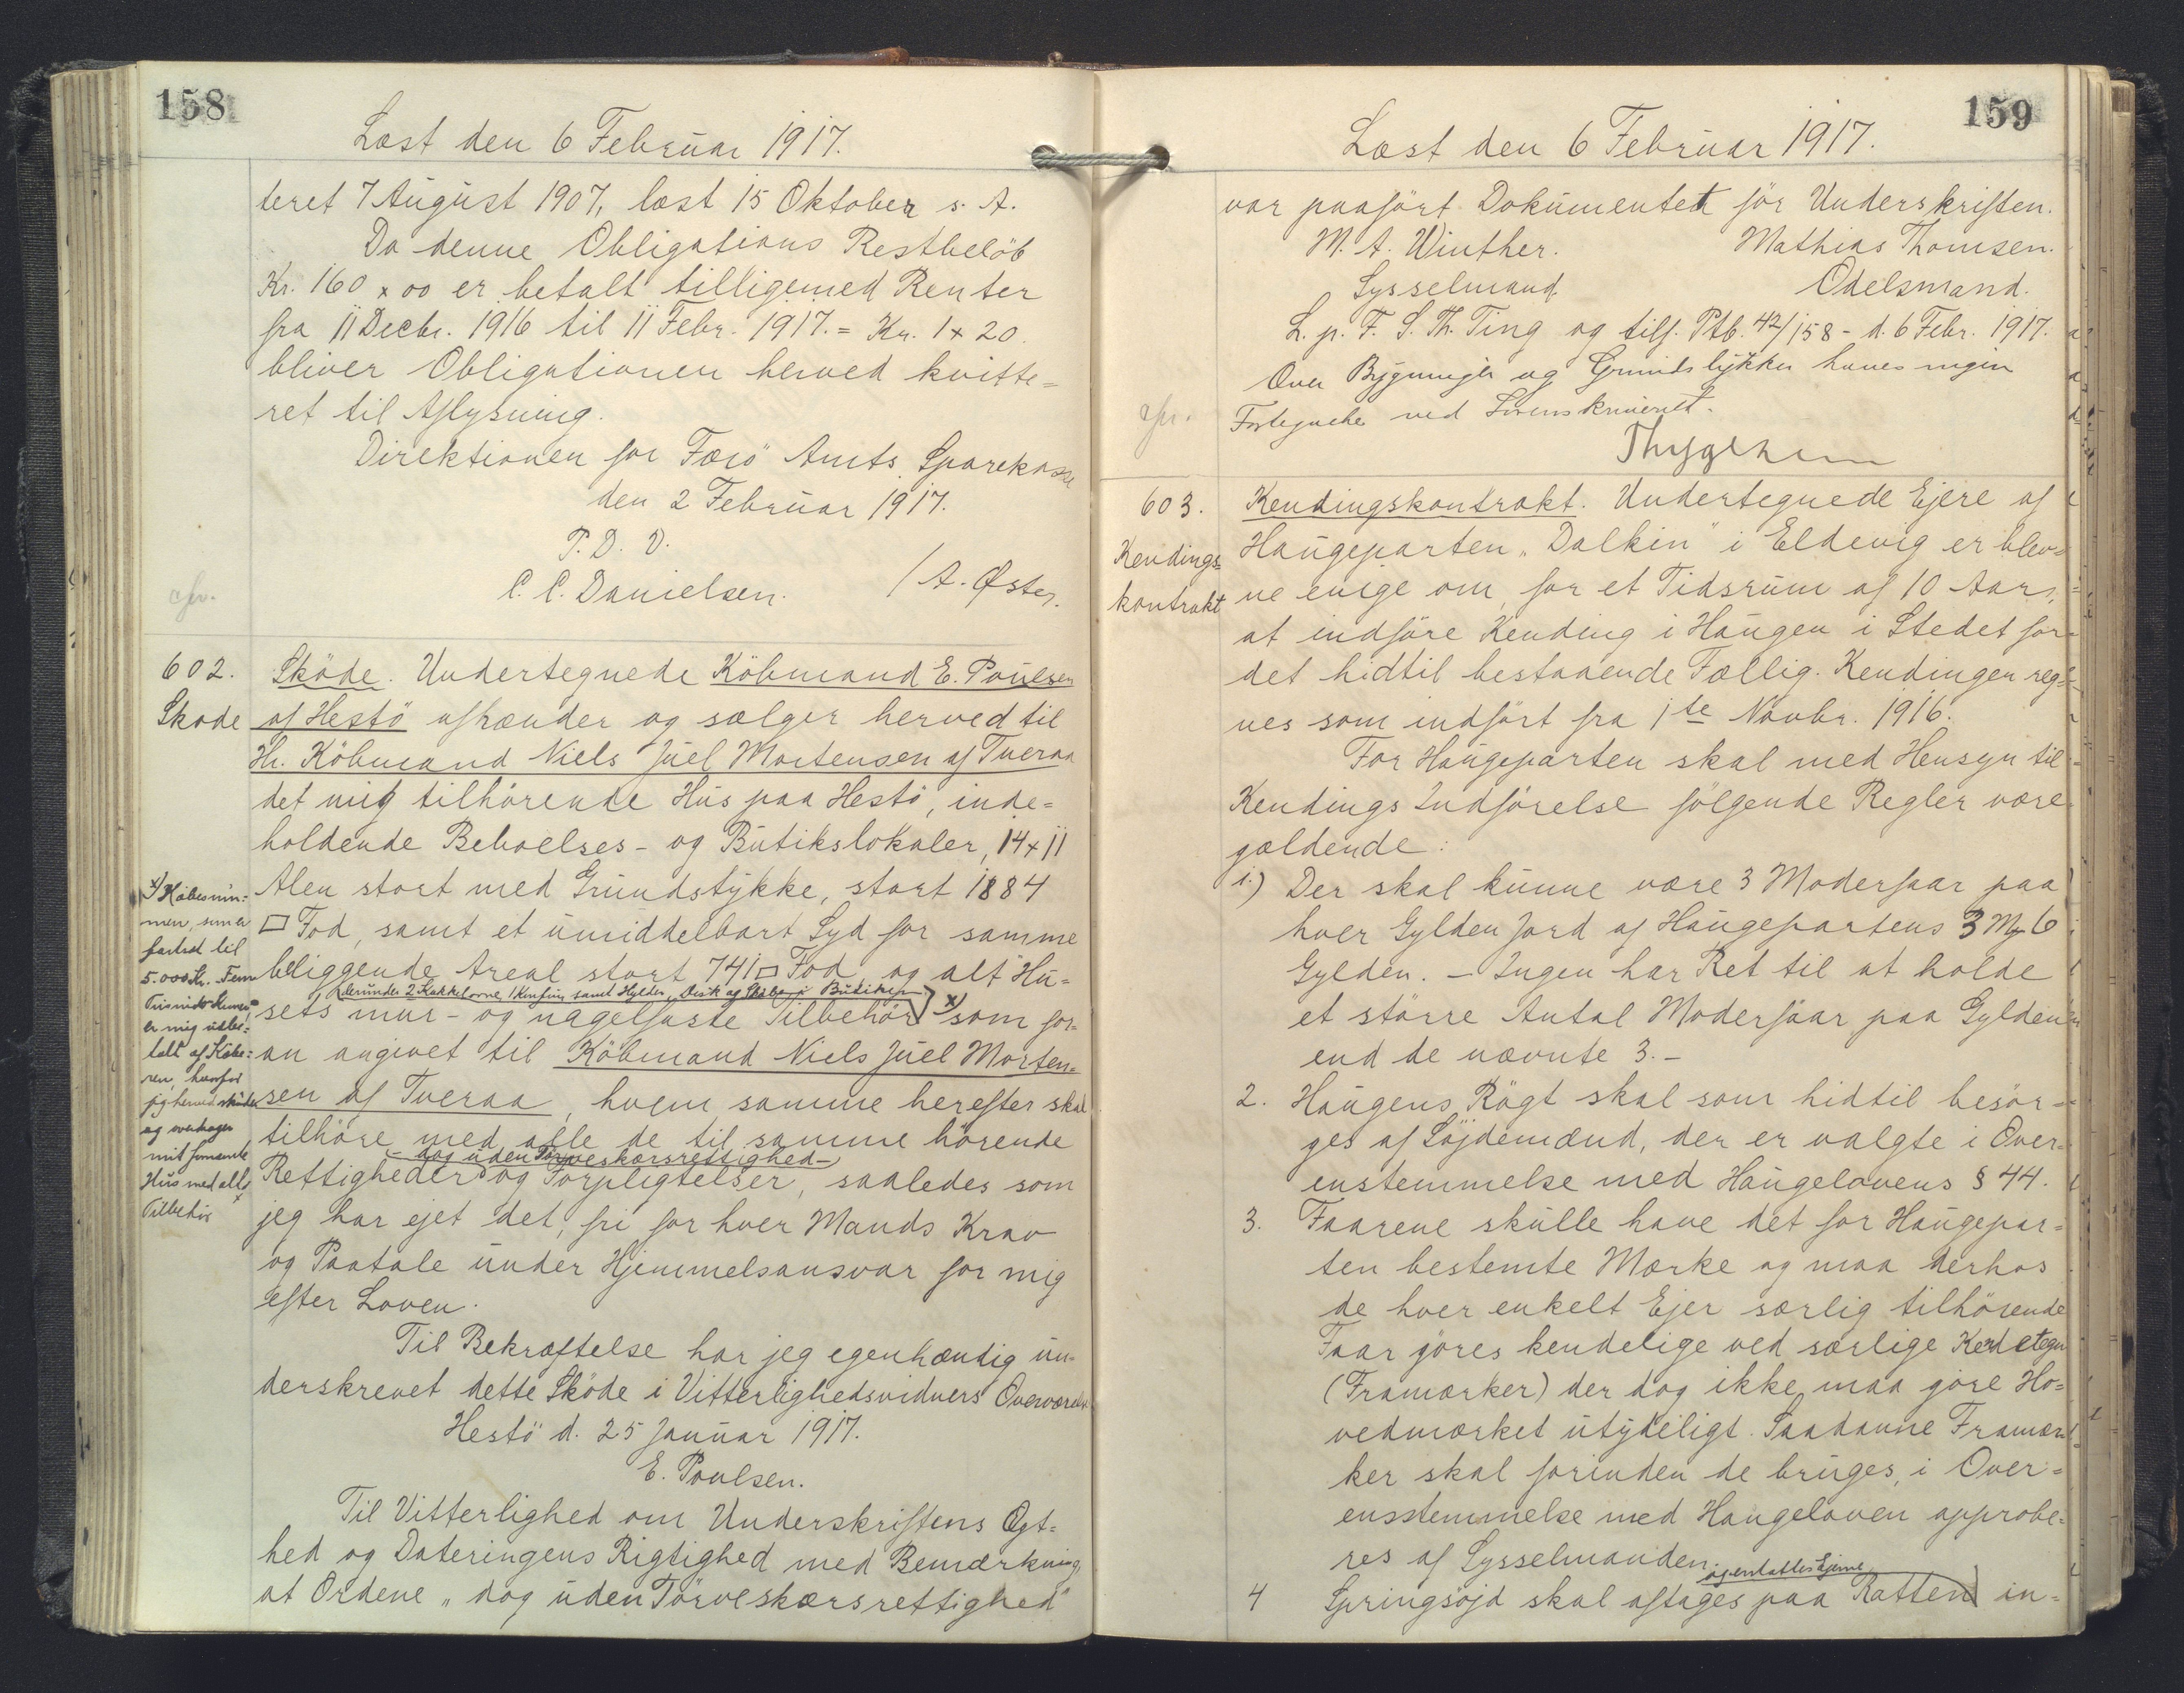 158
Læst den 6 Februar 1917.
teret 7 August 1907, læst 15 Oktober s. A.
Da denne Obligations Restbelöb
Kr. 160 x 00 er betalt tilligemed Renter
fra 11 Decbr. 1916 til 11 Febr. 1917. = Kr. 1 x 20.
bliver Obligationen herved kvitte=
ret til Aflysning.
Direktionen for Færö Amts Sparekasse
den 2 Februar 1917.
P. D. V.
C. C. Danielsen. / A. Øster.
602.
Sköde
Sköde. Undertegnede Köbmand E. Poulsen
af Hestö afhænder og sælger herved til
Hr. Köbmand Niels Juel Mortensen af Tveraa
det mig tilhörende Hus paa Hestö, inde=
holdende Beboelses- og Butikslokaler, 14 x 11
Alen stort med Grundstykke, stort 1884
□ Fod, samt et umiddelbart Syd for samme
beliggende Areal stort 741 □ Fod, og alt Hu=
derunder 2 Kakkelovne, 1 Komfur samt Hylder, Disk og Skabe i Butiken
sets mur- og nagelfaste Tilbehör x) som for=
an angivet til Köbmand Niels Juel Morten=
sen af Tveraa, hvem samme herefter skal
tilhöre med alle de til samme hörende
- dog uden Törveskærsrettighed -
Rettigheder og Forpligtelser, saaledes som
jeg har ejet det, fri for hver Mands Krav
og Paatale under Hjemmelsansvar for mig
efter Loven.
x) Köbesum=
men, som er
fastsat til
5.000 Kr. Fem
Tusinde Kroner
er mig udbe=
talt af Köbe=
ren, hvorfor
jeg herved sköder
og overdrager
mit fornævnte
Hus med alt
Tilbehör
Til Bekræftelse har jeg egenhændig un=
derskrevet dette Sköde i Vitterlighedsvidners Overværelse.
Hestö d. 25 Januar 1917.
E. Poulsen.
Til Vitterlighed om Underskriftens Ægt=
hed og Dateringens Rigtighed med Bemærkning,
at Ordene "dog uden Törveskærsrettighed"
159
Læst den 6 Februar 1917.
var paaført Dokumentet för Underskriften.
M. A. Winther. Mathias Thomsen.
Sysselmand. Odelsmand.
L. p. F. S. Th. Ting og tilf. Ptb. 42/158 - d. 6 Febr. 1917.
Over Bygninger og Grundstykker haves ingen
Fortegnelse ved Sorenskriveriet.
603.
Kendings=
kontrakt
Kendingskontrakt. Undertegnede Ejere af
Haugeparten "Dalkin" i Eldevig er blev=
ne enige om, for et Tidsrum af 10 Aar,
at indföre Kending i Haugen i Stedet for
det hidtil bestaaende Fællig. Kendingen reg=
nes som indfört fra 1te Novbr. 1916.
For Haugeparten skal med Hensyn til
Kendings Indförelse fölgende Regler være
gældende:
1.) Der skal kunne være 3 Moderfaar paa
hver Gylden Jord af Haugepartens 3 M 6
Gylden. - Ingen har Ret til at holde
et större Antal Moderfaar paa Gylden
end de nævnte 3.-
2. Haugens Rögt skal som hidtil besör=
ges af Söjdemænd, der er valgte i Over=
enstemmelse med Haugelovens § 44.
3. Faarene skulle have det for Haugepar=
ten bestemte Mærke og maa derhos
de hver enkelt Ejer særlig tilhörende
Faar göres kendelige ved særlige Kendetegn
(Framærker) der dog ikke maa göre Ho=
vedmærket utydeligt. Saadanne Framær=
ker skal forinden de bruges, i Over=
ensstemmelse med Haugeloven approbe=
res af Sysselmanden
4 Springsöjd skal aftages paa Ratten in=